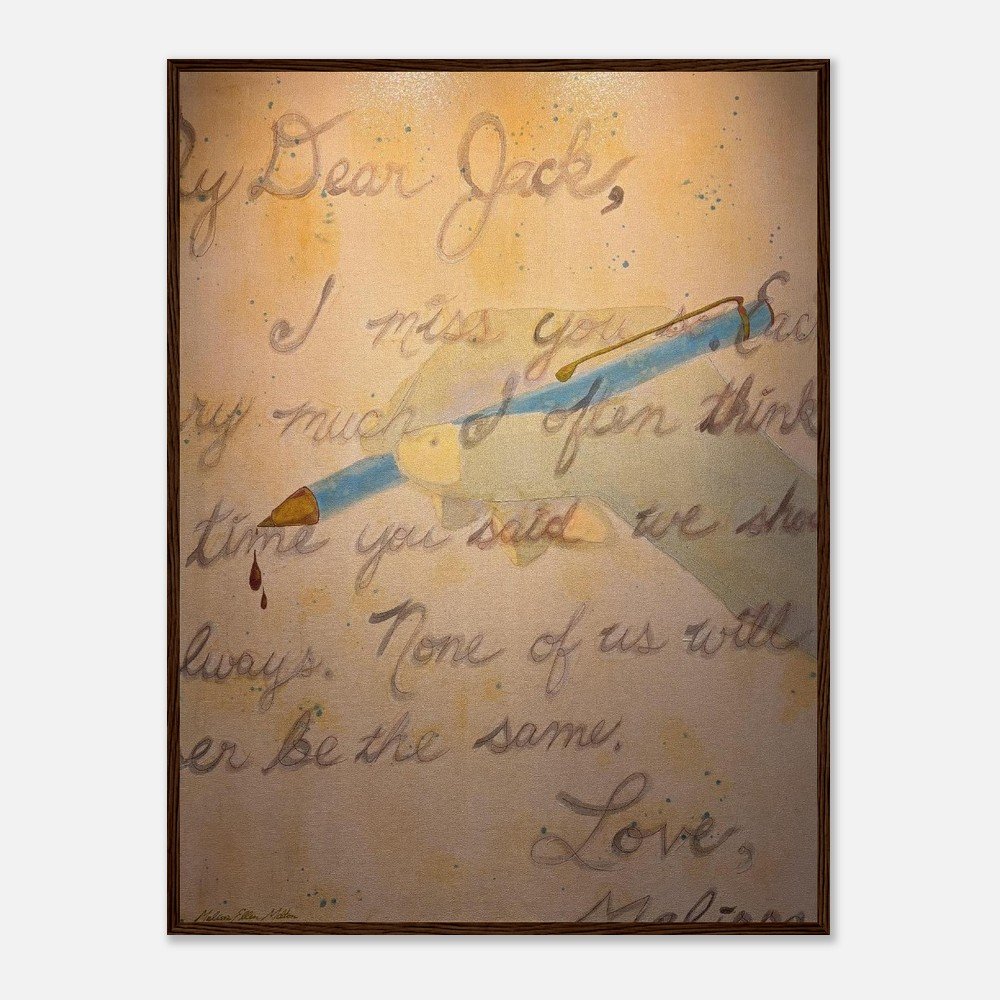 ly Dear Jack,
I miss you so. Eac
ry much I often think
time you said we shou
lways. None of us will
er be the same.
Love,
Melissa
Melissa Ellen Milton